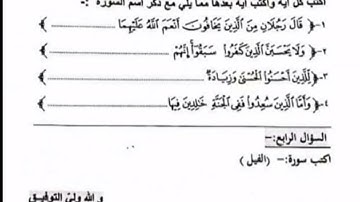 اكتب كل آية واكتب آية بعدها مما يلي مع ذكر اسم السورة :-
١-﴿ قَالَ رَجُلَانِ مِنَ الَّذِينَ يَخَافُونَ أَنْعَمَ اللَّهُ عَلَيْهِمَا
٢-﴿ وَلَا يَحْسَبَنَّ الَّذِينَ كَفَرُوا سَبَقُوا إِنَّهُمْ
٣-﴿ لِلَّذِينَ أَحْسَنُوا الْحُسْنَى وَزِيَادَةٌ
٤-﴿ وَأَمَّا الَّذِينَ سُعِدُوا فَفِي الْجَنَّةِ خَالِدِينَ فِيهَا
السؤال الرابع:-
اكتب سورة: (الفيل)
و الله وليّ التوفيق